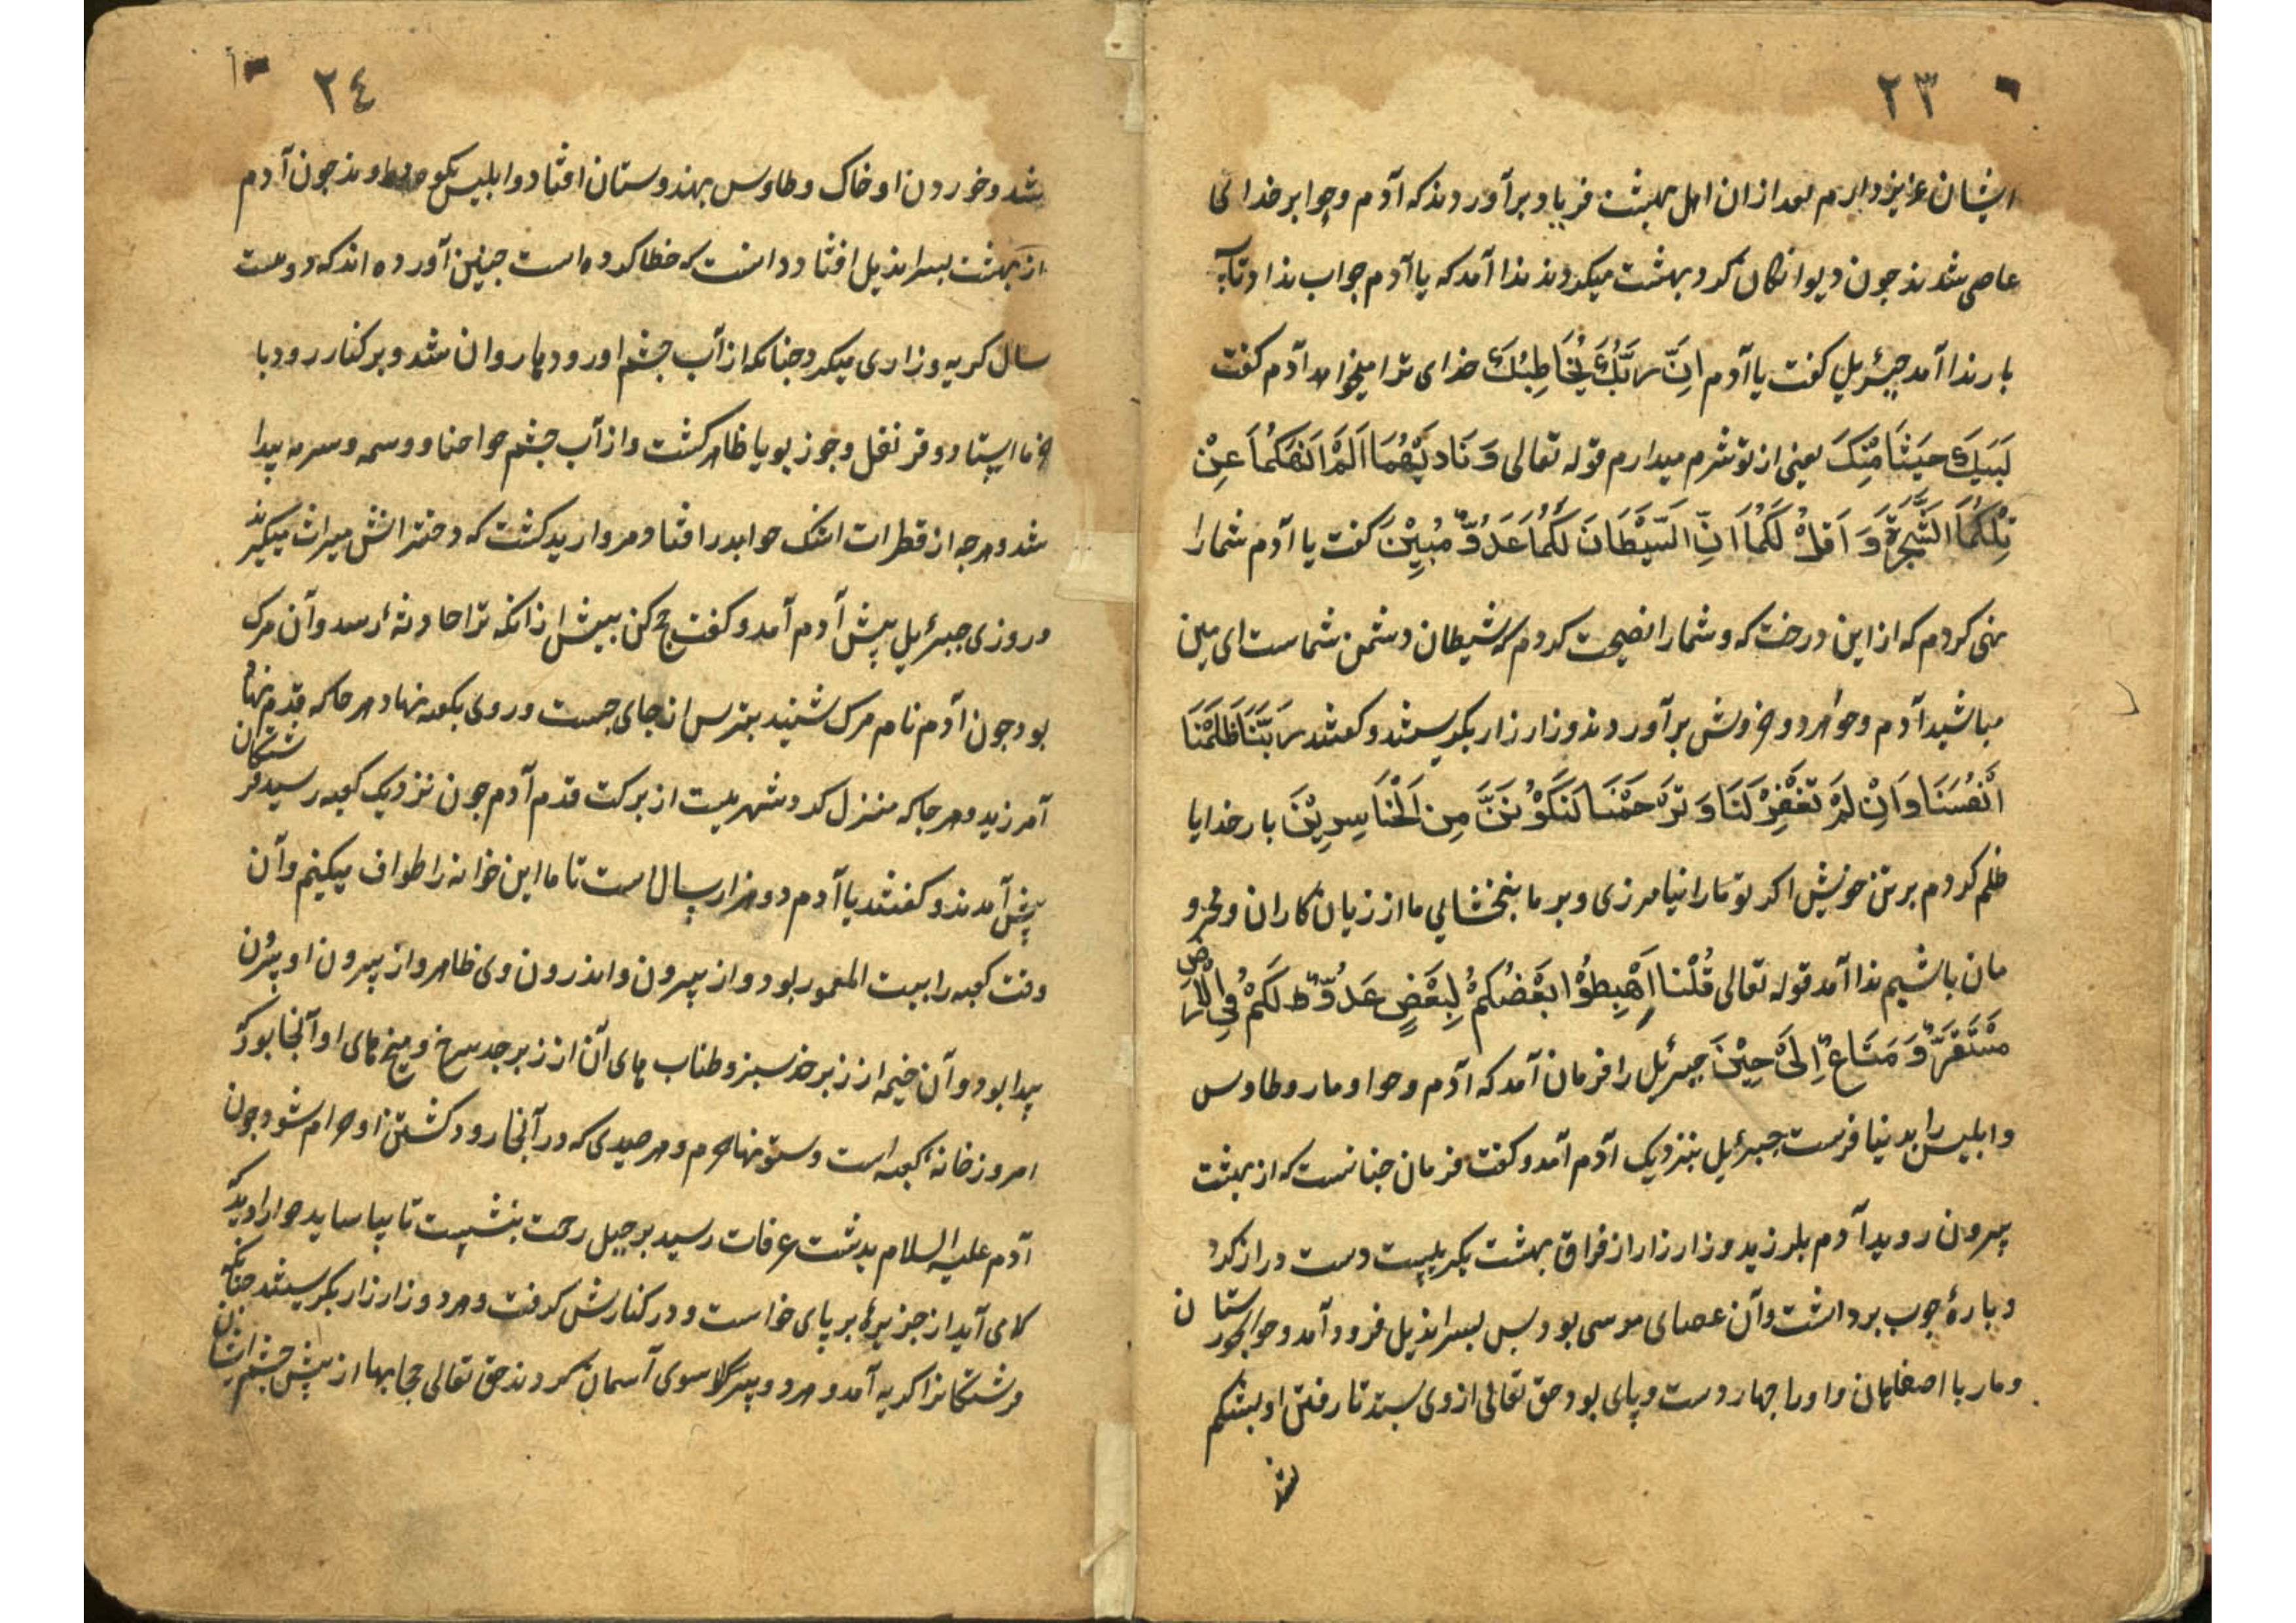 ٢٣
ایشان عزیز دارم بعد ازان اهل بهشت فریاد برآوردند که آدم و حوا بر خدای
عاصی شدند چون دیوانکان کرد بهشت میکردند ندا آمد که یا آدم جواب نداد تا سه
بار ندا آمد جبرئیل کفت یا آدم اِنَّ رَبَّكَ یُخَاطِبُكَ خدای ترا میخواهد آدم کفت
لَبَیكَ حَیَثَا مِّنكَ یعنی از تو شرم میدارم قوله تعالی وَ نَادیٰهُمَا اَلَمْ اَنْهَكُمَا عَنْ
تِلْكُمَا الشَّجَرَةِ وَ اَقُلْ لَكُمَا اَنِّ الشَیْطَانَ لَكُمَا عَدُوٌّ مُبِیْنَ کفت یا آدم شما را
نهی کردم که از این درخت که و شما را نصیحت کردم که شیطان دشمن شماست ای مین
مباشید آدم و حوا هر دو خروش برآوردند و زار زار بکریستند و کفتند رَبَّنَا ظَلَمْنَا
اَنْفُسَنَا وَ اِنْ لَمْ تَغْفِرْ لَنَا وَ تَرْحَمْنَا لَنَكُوْنَنَّ مِنَ الْخَاسِرِیْنَ بار خدایا
ظلم کردم بر تن خویش اکر تو ما را نیامرزی و بر ما نبخشایی ما از زیان کاران و محرو
مان باشیم ندا آمد قوله تعالی قُلْنَا اِهْبِطُوْا بَعْضُكُمْ لِبَعْضٍ عَدُوٌّ لَكُمْ فِی الْاَرْضِ
مُسْتَقَرٌّ وَ مَتَاعٌ اِلَیٰ حِیْنَ جبرئیل را فرمان آمد که آدم و حوا و مار و طاوس
و ابلیس را بدنیا فرست جبرئیل بنزدیک آدم آمد و کفت فرمان چنانست که از بهشت
بیرون روید آدم بلرزید و زار زار از فراق بهشت بکریست دست دراز کرد
و پارهٔ چوب برداشت و آن عصای موسی بود پس بسراندیل فرود آمد و حوا بخوزستان
و مار با اصفاهان و او را چهار دست و پای بود حق تعالی از وی ستد تا رفتن او بشکم
شد
٢٤
شد و خوردن او خاک و طاوس بهندوستان افتاد و ابلیس بکوه دماوند چون آدم
از بهشت بسراندیل افتاد دانست که خطا کرده است چنین آورده اند که دویست
سال کریه و زاری میکرد چنانکه از آب چشم او رودها روان شد و بر کنار رودبا
خرما ایستاد و قرنفل و جوز بویا ظاهر کشت و از آب چشم حوا حنا و وسمه و سرمه پیدا
شد و هرچه از قطرات اشک حوا بدر افتاد مروارید کشت که دخترانش میراث میکیرند
و روزی جبرئیل پیش آدم آمد و کفت حج کن پیش از آنکه ترا حادثهٔ رسد و آن مرک
بود چون آدم نام مرک شنید بترس از جای جست و روی بکعبه نهاد هر جا که قدم نهاد
آمرزید و هر جا که منزل کرد شهریست از برکت قدم آدم چون نزدیک کعبه رسید فرشتکان
پیش آمدند و کفتند یا آدم دو هزار سال است تا ما این خوانه را طواف میکنیم و آن
وقت کعبه را بیت المعمور بود و از بیرون و اندرون وی ظاهر و از بیرون او بیرون
پیدا بود و آن خیمه از زبرجد سبز و طناب های آن از زبرجد سرخ و میخ های او آنجا بود که
امروز خانهٔ کعبه است و ستونها حرم و هر صیدی که در آنجا رود کشتن او حرام شود چون
آدم علیه السلام بدشت عرفات رسید بر جبل رحمت بنشست تا بیاساید حوا را دید که
می آید از جزیرها بر پای خواست و در کنارش کرفت و هر دو زار زار بکریستند چنانکه
فرشتکانرا کریه آمد و هر دو سوی آسمان کردند حق تعالی حجابها از پیش چشم ایشان